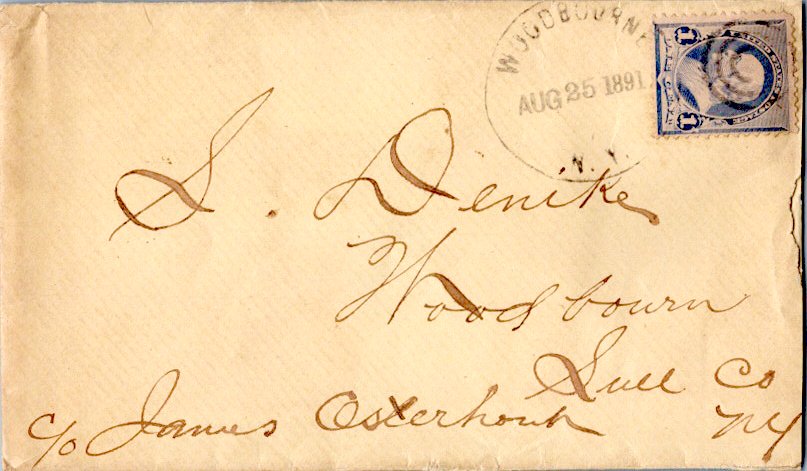 WOODBOURNE
AUG 25 1891
N.Y.
1 1
S. Denike
Woodbourn
Sull Co
c/o James Osterhout NY